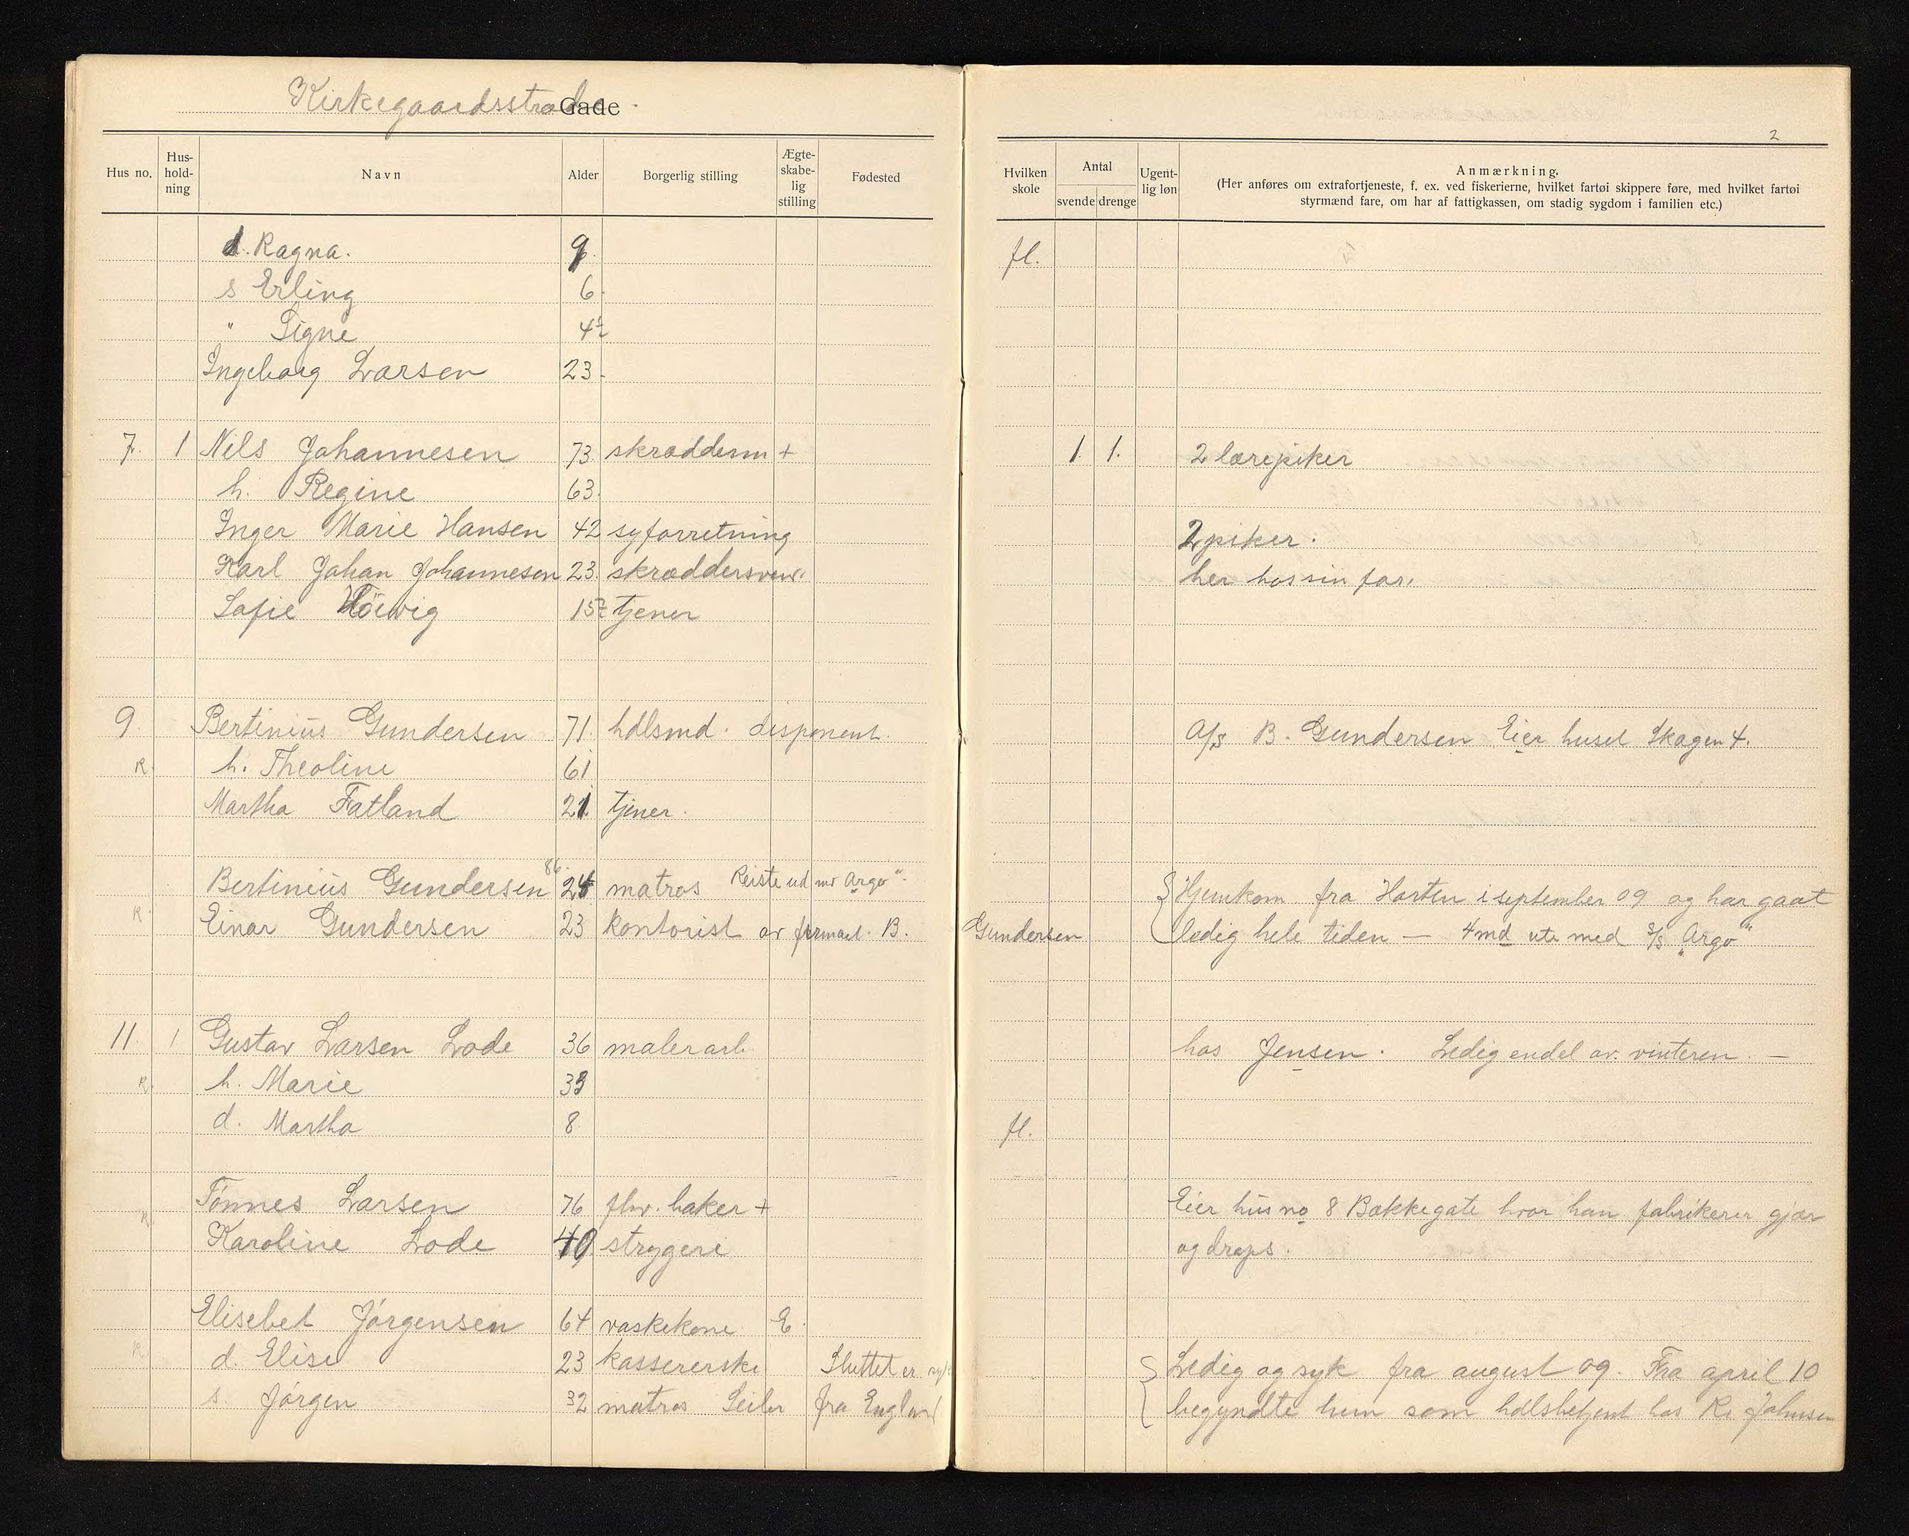 Kirkegaardsstræde Gade
2
Hus no. Hus-hold-ning Navn Alder Borgerlig stilling Ægte-skabe-lig stilling Fødested Hvilken skole Antal svende drenge Ugent-lig løn Anmærkning.
(Her anføres om extrafortjeneste, f. ex. ved fiskerierne, hvilket fartøi skippere føre, med hvilket fartøi
styrmænd fare, om har af fattigkassen, om stadig sygdom i familien etc.)
d. Ragna. 9. fl.
s Erling 6.
" Signe 4½
Ingeborg Larsen 23.
7. 1 Nils Johannesen 73 skrædderm + 1. 1. 2 lærepiker
h. Regine 63.
Inger Marie Hansen 42 syforretning 2 piker.
Karl Johan Johannesen 23. skræddersven. her hos sin far.
Sofie 15½ tjener
9. Bertinius Gundersen 71. hdlsmd. disponent. A/S B. Gundersen Eier huset Skagen 4.
R. h. Theoline 61
Martha Fatland 21. tjener.
Bertinius Gundersen 86. 24 matros Reiste ud m "Argo". Hjemkom fra Horten i september 09 og har gaat
R. Einar Gundersen 23 kontorist av firmaet B. Gundersen ledig hele tiden — 4 md ute med S/S "Argo"
11 1 Gustav Larsen Lode 36 malerarb. hos Jensen. Ledig endel av vinteren. —
R. h. Marie 33
d. Martha 8 fl.
R Tönnes Larsen 76 fhv. baker + Eier hus no 8 Bækkegate hvor han fabrikerer gjær
Karoline Lode 40 strygeri og drops.
Elisebet Jörgensen 64 vaskekone E.
R d. Elise 23 kassererske Sluttet er Ledig og syk fra august 09. Fra april 10
s. Jörgen 32 matros Seiler fra England begyndte hun som hdlsbetjent hos Johnsen